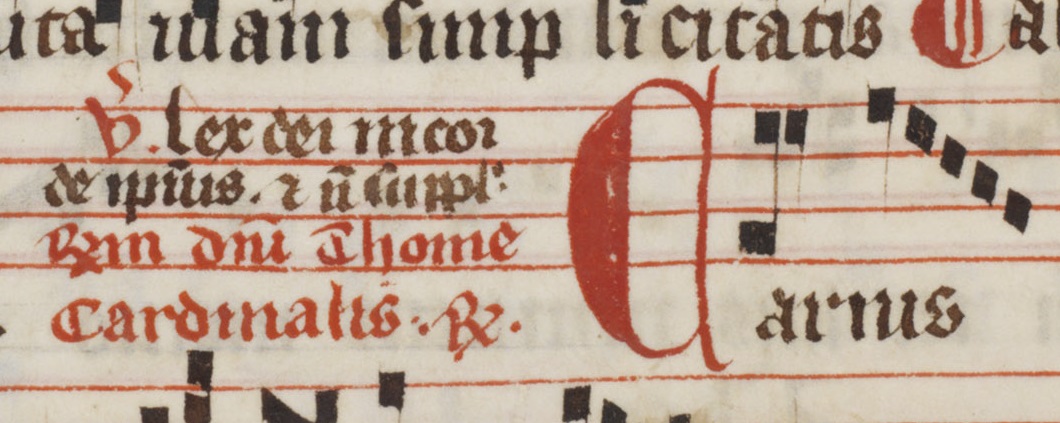 uta iuam simp licitatis Ca
V. lex dei in cor
de ipius. ⁊ ñ suppl
Rm dnī Thome
Cardinalis. ℟.
Carnis